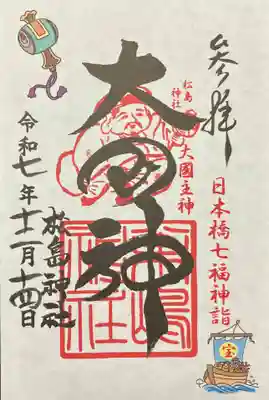 参拝
日本橋七福神詣
宝
松島
神社
大國主神
大国神
松島神社
令和七年十二月十四日